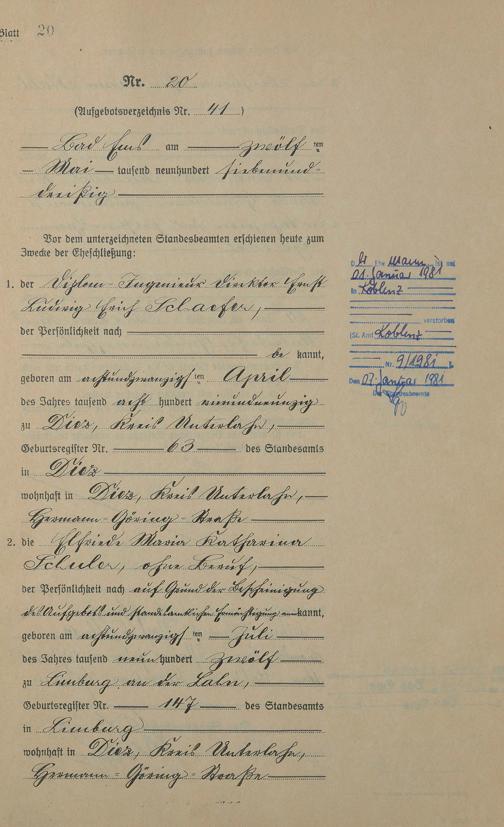 Blatt 20
Nr. 20
(Aufgebotsverzeichnis Nr. 41)
Bad Ems am zwölf ten
Mai tausend neunhundert siebenund-
dreißig
Vor dem unterzeichneten Standesbeamten erschienen heute zum
Zwecke der Eheschließung:
1. der Diplom-Ingenieur Direktor Ernst
Ludwig Erich Schaefer,
der Persönlichkeit nach
be kannt,
geboren am achtundzwanzigs ten April
des Jahres tausend acht hundert vierundneunzig
zu Diez, Kreis Unterlahn,
Geburtsregister Nr. 63 des Standesamts
in Diez
wohnhaft in Diez, Kreis Unterlahn,
Hermann-Göring-Straße
2. die Elfriede Maria Katharina
Schuler, ohne Beruf,
der Persönlichkeit nach auf Grund der Bescheinigung
des Aufgebots und standesamtlichen Ermächtigung kannt,
geboren am achtundzwanzigs ten Juli
des Jahres tausend neun hundert zwölf
zu Limburg an der Lahn,
Geburtsregister Nr. 147 des Standesamts
in Limburg
wohnhaft in Diez, Kreis Unterlahn,
Hermann-Göring-Straße
Der Ehemann ist am
01. Januar 1981
in Koblenz
verstorben
(St. Amt Koblenz
Nr. 9/1981
Den 07. Januar 1981